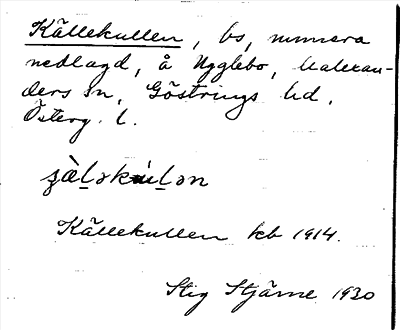 Källekullen, bs, numera
nedlagd, å Ygglebo, Malexan-
ders sn, Göstrings hd,
Österg. l.
Källekullen kb 1914.
Stig Stjärne 1930